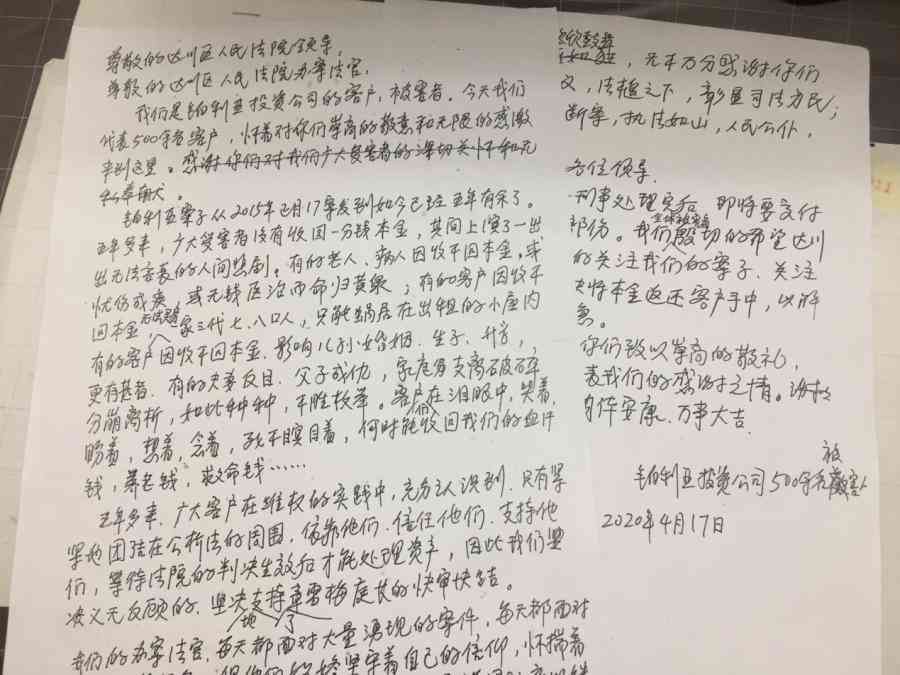 尊敬的达川区人民法院领导,
尊敬的达川区人民法院办案法官,
我们是铂利亚投资公司的客户,被害者。今天我们
代表500余名客户,怀着对你们崇高的敬意和无限的感激
来到这里。感谢你们对我们广大受害者的深切关怀和无
私奉献。
铂利亚案子从2015年正月17案发到如今已经五年有余了。
五年多来,广大受害者没有收回一分钱本金,其间上演了一出
出无法容忍的人间悲剧。有的老人、病人因收不回本金,或
忧伤成疾,或无钱医治而命归黄泉;有的客户因收不
回本金,一家三代七、八口人,只能蜗居在出租的小屋内
有的客户因收不回本金、影响儿孙婚姻、生子、升学,
更有甚者、有的夫妻反目、父子成仇,家庭支离破碎
分崩离析,如此种种,不胜枚举。客户在泪眼中,哭着,
盼着,想着,念着,死不瞑目着,何时能收回我们的血汗
钱,养老钱,救命钱……
五年多来、广大客户在维权的实践中,充分认识到、只有紧
紧的团结在公检法的周围、依靠他们、信任他们、支持他
们,等待法院的判决生效后才能处理资产,因此我们坚
决义无反顾的、坚决支持 雪梅庭长的快审快结。
我们的办案法官,每天都面对大量涌现的案件,每天都面对
着自己的信仰,怀揣着
,允千万分感谢你们
义,法槌之下,彰显司法为民;
断案,执法如山,人民公仆。
各位领导,
刑事处理完后,即将要交付
我们殷切的希望达川
的关注我们的案子、关注
将本金返还客户手中,以解
急。
你们致以崇高的敬礼,
表我们的感谢之情。
身体安康、万事大吉
铂利亚投资公司500余名被害人
2020年4月17日